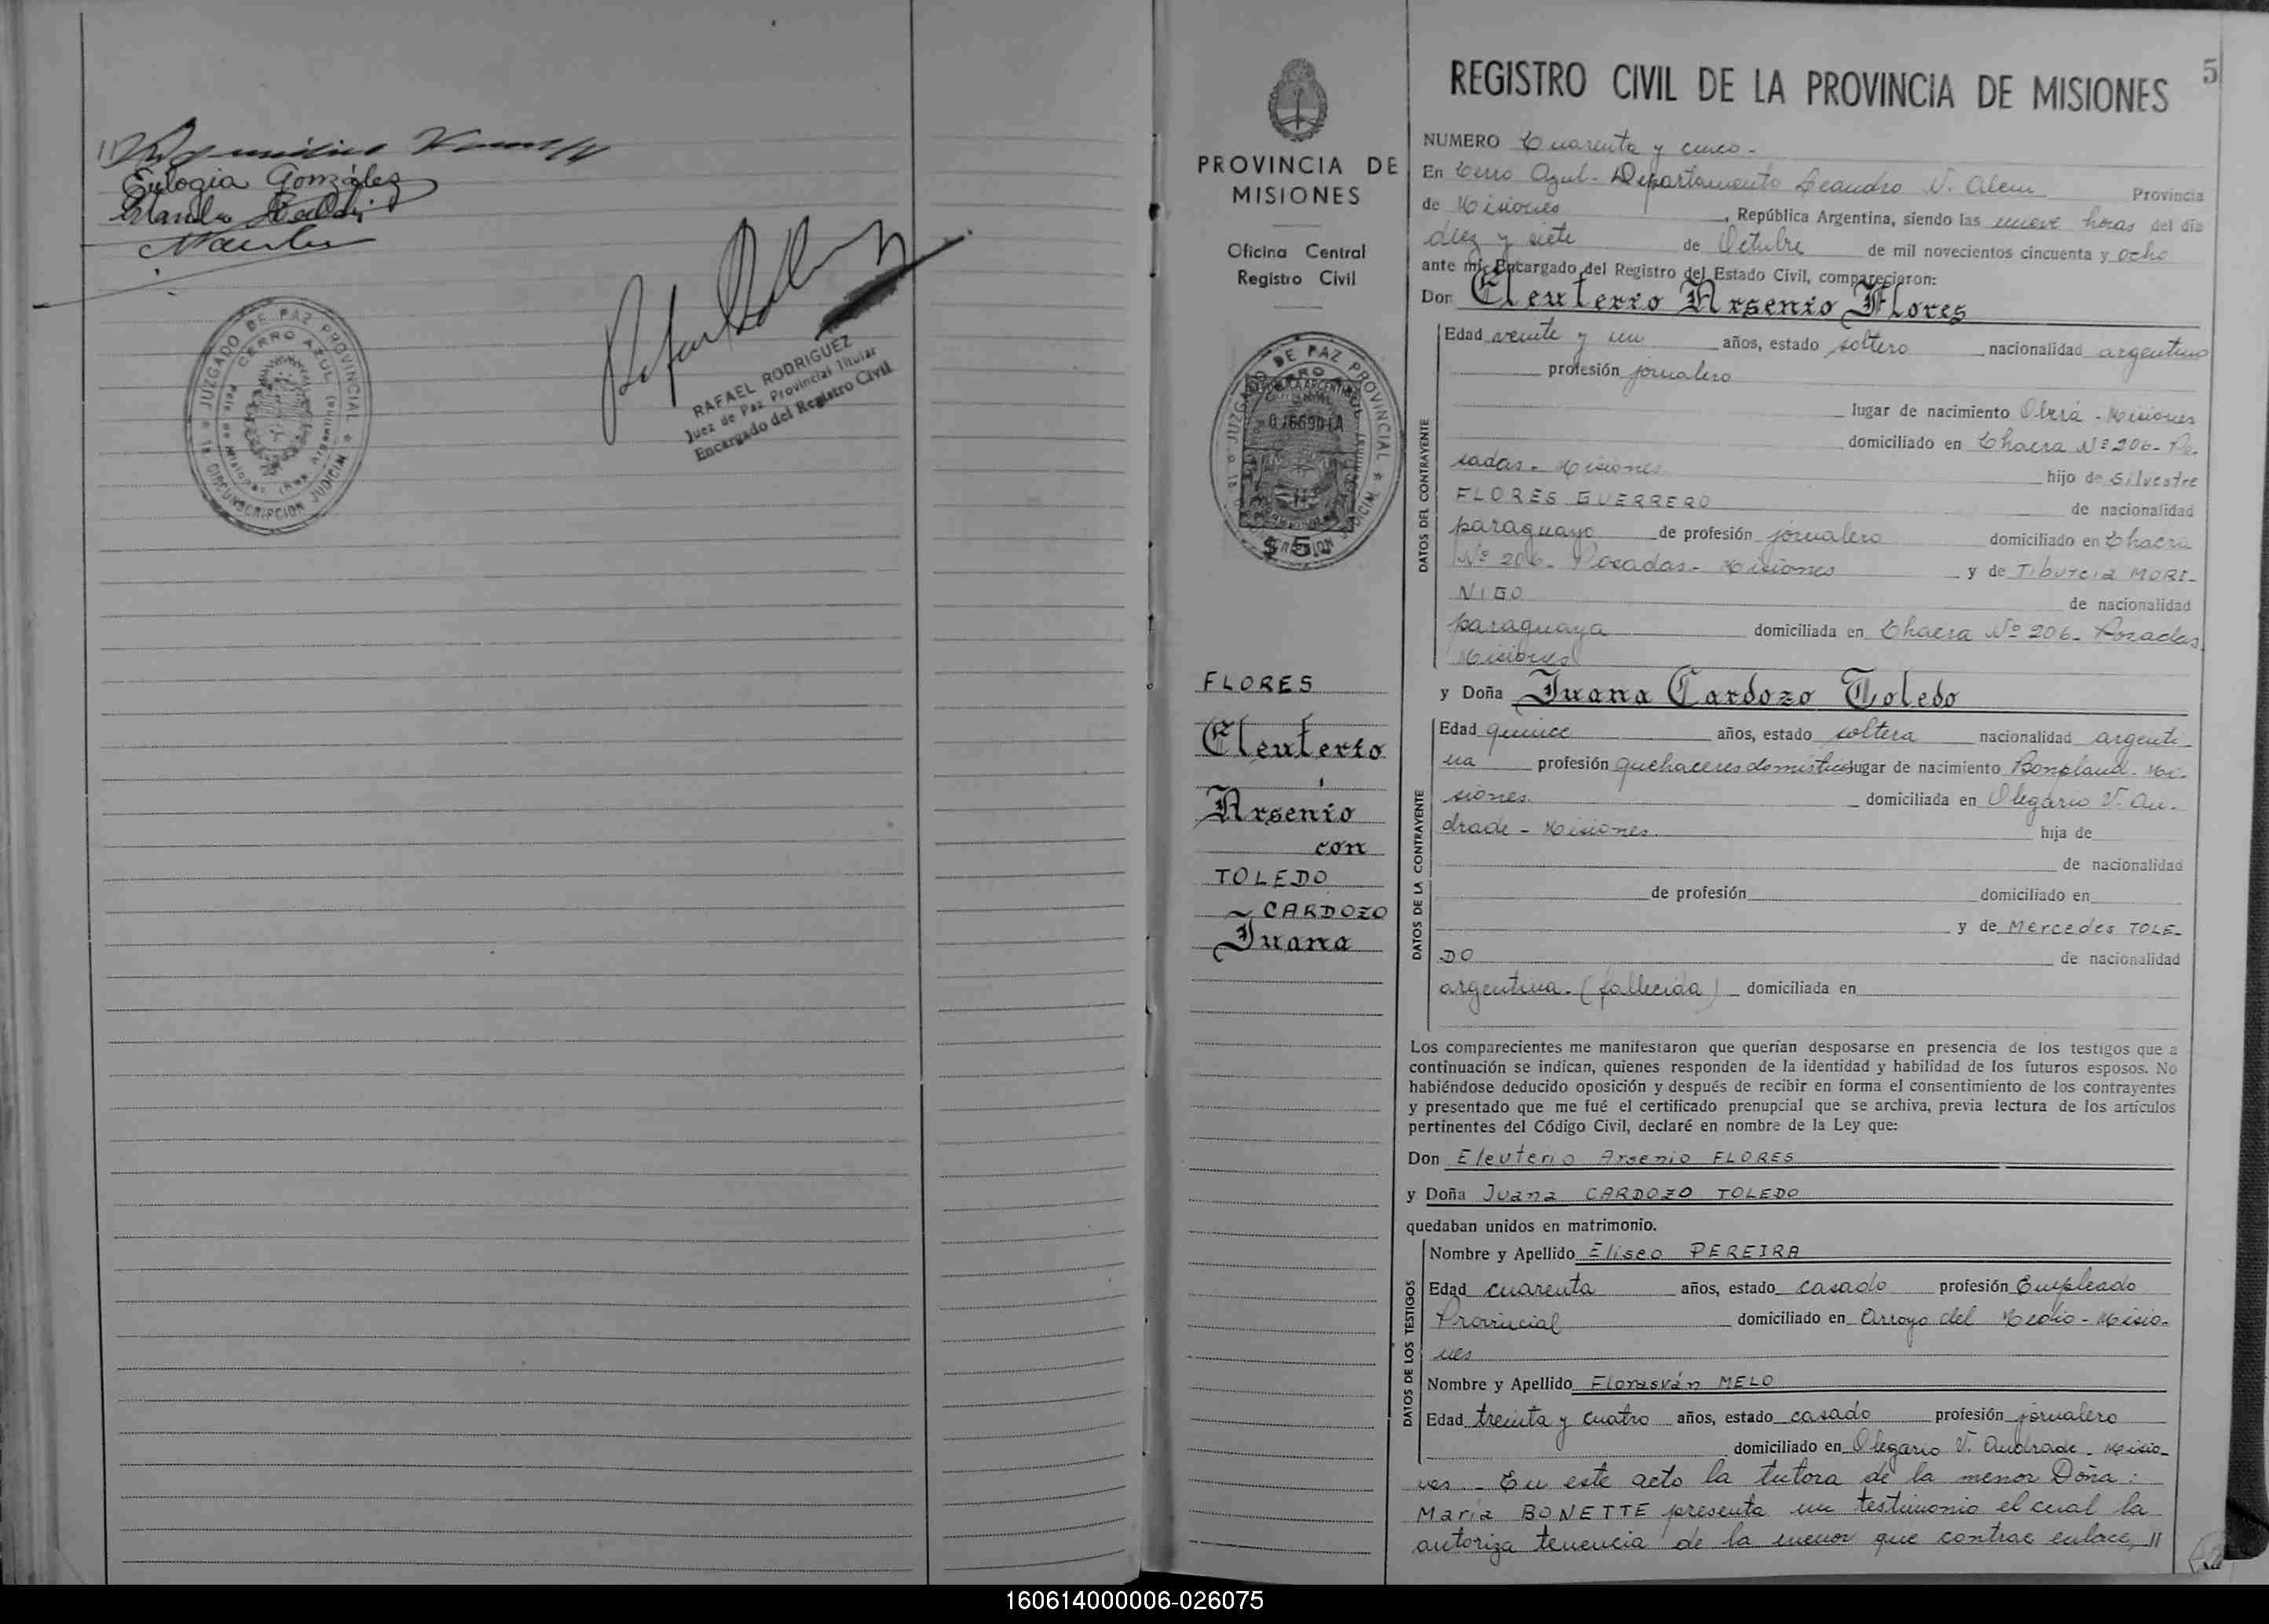 Eulogia González
JUZGADO DE PAZ PROVINCIAL
CERRO AZUL
1a CIRCUNSCRIPCION JUDICIAL
RAFAEL RODRIGUEZ
Juez de Paz Provincial Titular
Encargado del Registro Civil
PROVINCIA DE
MISIONES
Oficina Central
Registro Civil
JUZGADO DE PAZ PROVINCIAL
$ 5
FLORES
Eleuterio
Arsenio
con
TOLEDO
CARDOZO
Juana
5
REGISTRO CIVIL DE LA PROVINCIA DE MISIONES
NUMERO Cuarenta y cinco-
En Cerro Azul- Departamento Leandro N. Alem Provincia
de Misiones, República Argentina, siendo las nueve horas del día
diez y siete de Octubre de mil novecientos cincuenta y ocho
ante mí, Encargado del Registro del Estado Civil, comparecieron:
Don Eleuterio Arsenio Flores
DATOS DEL CONTRAYENTE
Edad veinte y un años, estado soltero nacionalidad argentino
profesión jornalero
lugar de nacimiento Oberá - Misiones
domiciliado en Chacra Nº 206- Po-
sadas- Misiones hijo de Silvestre
FLORES GUERRERO de nacionalidad
paraguayo de profesión jornalero domiciliado en Chacra
Nº 206- Posadas- Misiones y de Tiburcia MORI-
NIGO de nacionalidad
paraguaya domiciliada en Chacra Nº 206- Posadas
Misiones
y Doña Juana Cardozo Toledo
DATOS DE LA CONTRAYENTE
Edad quince años, estado soltera nacionalidad argenti-
na profesión quehaceres domésticos lugar de nacimiento Bonpland- Mi-
siones. domiciliada en Olegario V. An-
drade - Misiones. hija de
de nacionalidad
de profesión domiciliado en
y de Mercedes TOLE-
DO de nacionalidad
argentina- (fallecida) domiciliada en
Los comparecientes me manifestaron que querían desposarse en presencia de los testigos que a
continuación se indican, quienes responden de la identidad y habilidad de los futuros esposos. No
habiéndose deducido oposición y después de recibir en forma el consentimiento de los contrayentes
y presentado que me fué el certificado prenupcial que se archiva, previa lectura de los artículos
pertinentes del Código Civil, declaré en nombre de la Ley que:
Don Eleuterio Arsenio FLORES
y Doña Juana CARDOZO TOLEDO
quedaban unidos en matrimonio.
DATOS DE LOS TESTIGOS
Nombre y Apellido Eliseo PEREIRA
Edad cuarenta años, estado casado profesión Empleado
Provincial domiciliado en Arroyo del Medio - Misio-
nes
Nombre y Apellido Floresván MELO
Edad treinta y cuatro años, estado casado profesión jornalero
domiciliado en Olegario V. Andrade - Misio-
nes.- En este acto la tutora de la menor Doña:
María BONETTE presenta un testimonio el cual la
autoriza tenencia de la menor que contrae enlace, //
160614000006-026075